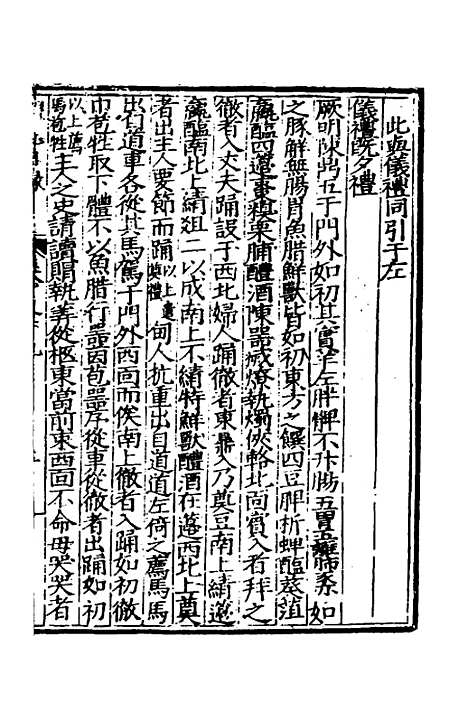 此與儀禮同引于左
儀禮既夕禮
厥明陳鼎五于門外如初其實羊左胖髀不升腸五胃五離肺豕亦如
之豚解無腸胃魚腊鮮獸皆如初東方之饌四豆脾析蜱醢葵菹
蠃醢四籩棗糗栗脯醴酒陳器滅燎執燭俠輅北面賓入者拜之
徹者入丈夫踊設于西北婦人踊徹者東鼎入乃奠豆南上綪籩
蠃醢南北上綪俎二以成南上不綪特鮮獸醴酒在籩西北上奠
者出主人要節而踊以上遣奠禮甸人抗重出自道道左倚之薦馬馬
出自道車各從其馬駕于門外西面而俟南上徹者入踊如初徹
巾苞牲取下體不以魚腊行器茵苞器序從車從徹者出踊如初
以上舊馬苞牲主人之史請讀賵執筭從柩東當前東西面不命毋哭哭者